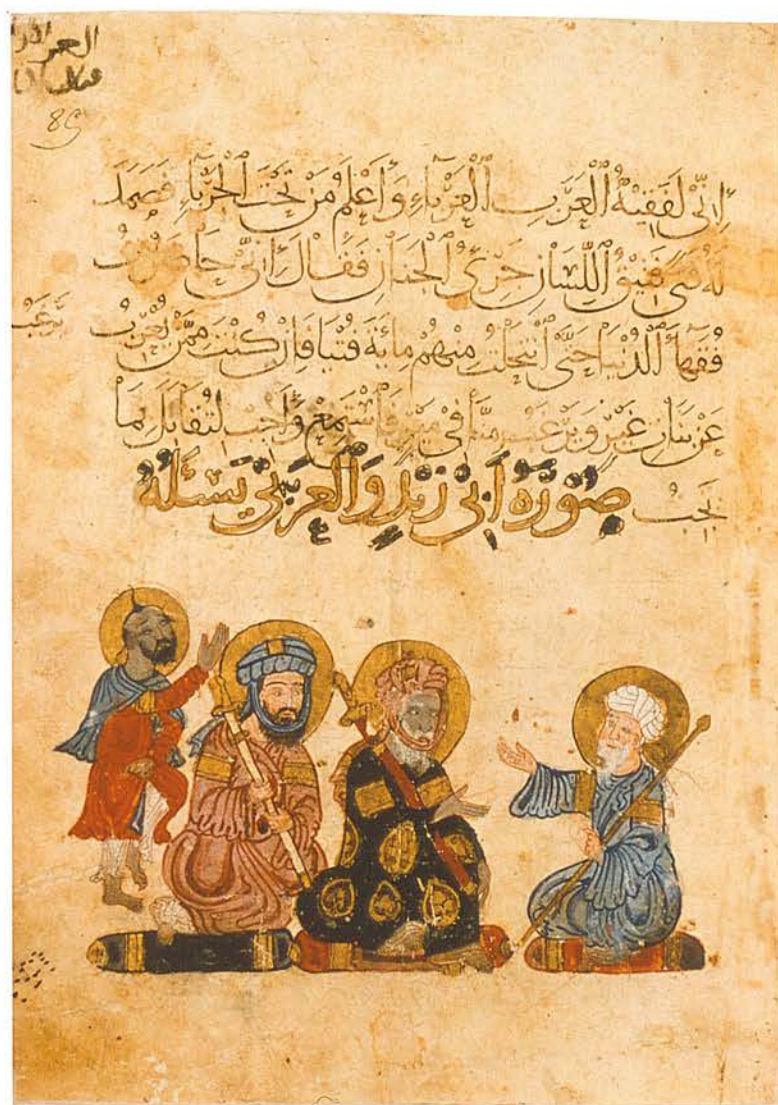 إِنِّي لَفَقِيهُ الْعَرَبِ الْعَرْبَاءِ وَأَعْلَمُ مَنْ تَحْتَ الْجَرْبَاءِ فَصَمَدَ
لَهُ فَتًى فَتِيقُ اللِّسَانِ جَرِيُّ الْجَنَانِ فَقَالَ إِنِّي حَاضَرْتُ
فُقَهَاءَ الدُّنْيَا حَتَّى انْتَخَلْتُ مِنْهُمْ مِائَةَ فُتْيَا فَإِنْ كُنْتَ مِمَّنْ
يَرْغَبُ
عَنْ بَنَاتِ غَيْرٍ وَيَرْغَبُ مِنَّا فِي مَيْرٍ فَاسْتَمِعْ وَأَجِبْ لِتُقَابَلَ بِمَا
يَجِبُ صُورَةُ أَبِي زَيْدٍ وَالْعَرَبِيُّ يَسْئَلُهُ